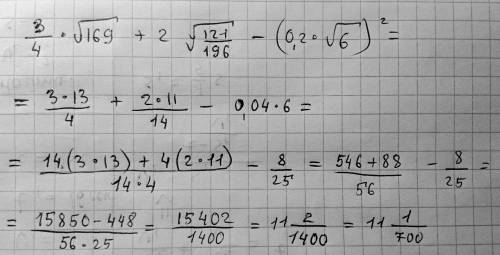 3/4 · √169 + 2 √(121/196) − (0,2 · √6)² =
= (3·13)/4 + (2·11)/14 − 0,04·6 =
= (14.(3·13) + 4(2·11))/(14·4) − 8/25 = (546+88)/56 − 8/25 =
= (15850−448)/(56·25) = 15402/1400 = 11 2/1400 = 11 1/700